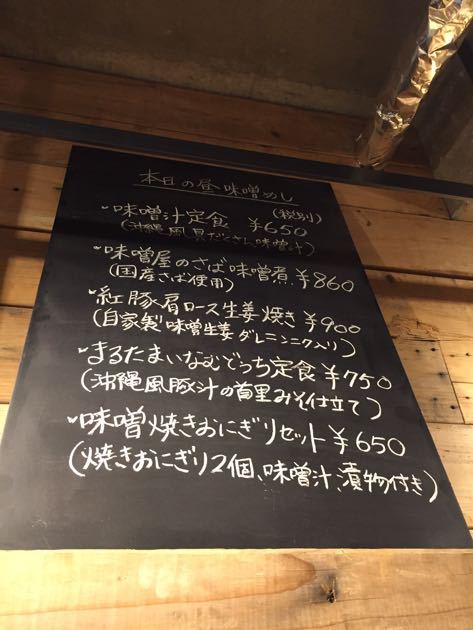 本日の昼味噌めし
(税別)
・味噌汁定食 ¥650
(沖縄風具だくさん味噌汁)
・味噌屋のさば味噌煮 ¥860
(国産さば使用)
・紅豚肩ロース生姜焼き ¥900
(自家製味噌生姜ダレニンニク入り)
・まるたまいなむどっち定食 ¥750
(沖縄風豚汁の首里みそ仕立て)
・味噌焼きおにぎりセット ¥650
(焼きおにぎり2個、味噌汁、漬物付き)